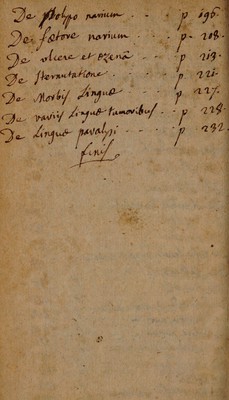 De polypo narium . . . p 196.
De fœtore narium . . . p. 208.
De vlcere et ozenâ . . . p 213.
De sternutatione . . . p 221.
De Morbis Linguæ . . . p 227.
De variis Linguæ tumoribus . . p 228.
De Linguæ paralysi . . . p 232.
finis